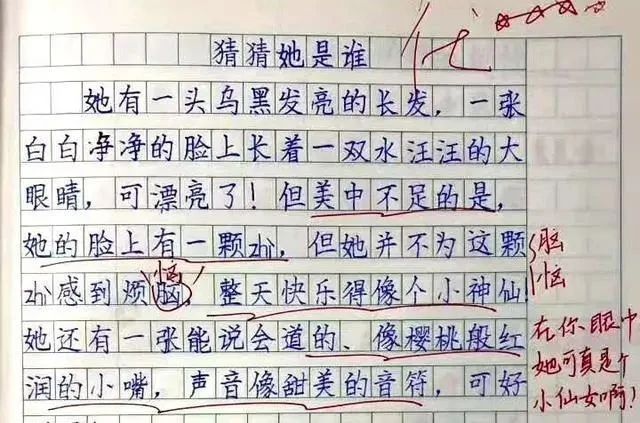 猜猜她是谁
优
她有一头乌黑发亮的长发，一张
白白净净的脸上长着一双水汪汪的大
眼睛，可漂亮了！但美中不足的是，
她的脸上有一颗zhì，但她并不为这颗
zhì感到烦脑，整天快乐得像个小神仙！
恼
脑
恼
她还有一张能说会道的、像樱桃般红
润的小嘴，声音像甜美的音符，可好
在你眼中
她可真是个
小仙女啊！